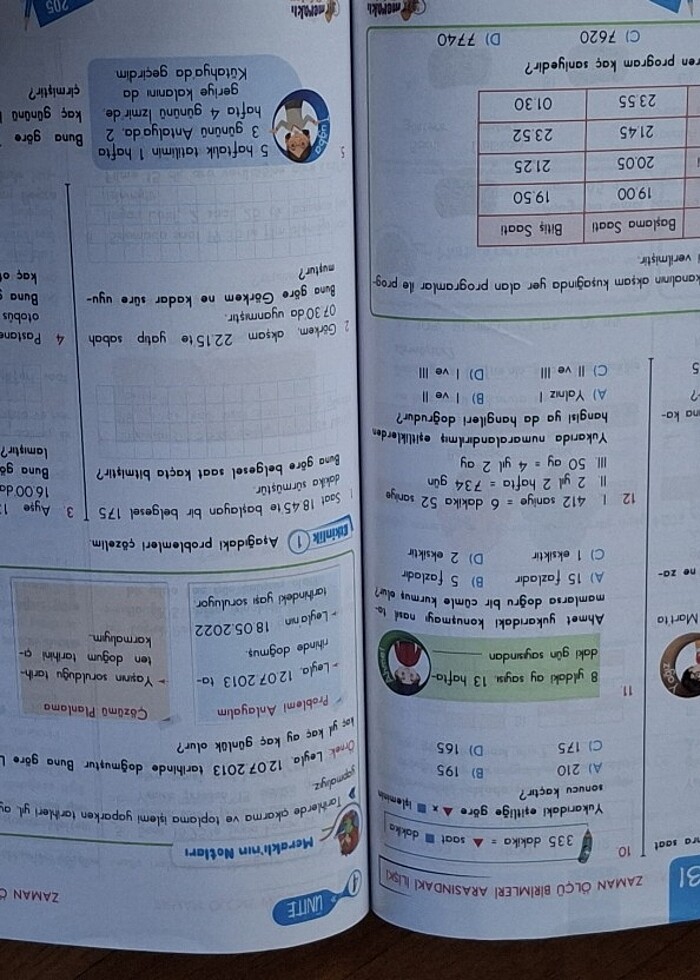 B1
ZAMAN ÖLÇÜ BİRİMLERİ ARASINDAKİ İLİŞKİ
ara saat
10.
335 dakika = ▲ saat ■ dakika
Yukarıdaki eşitliğe göre ▲ x ■ işleminin
sonucu kaçtır?
A) 210 B) 195
C) 175 D) 165
11.
8 yıldaki ay sayısı, 13 hafta-
daki gün sayısından ______
Ahmet
Ahmet yukarıdaki konuşmayı nasıl ta-
mamlarsa doğru bir cümle kurmuş olur?
A) 15 fazladır B) 5 fazladır
C) 1 eksiktir D) 2 eksiktir
Mart'ta
ne za-
12. I. 412 saniye = 6 dakika 52 saniye
II. 2 yıl 2 hafta = 734 gün
III. 50 ay = 4 yıl 2 ay
Yukarıda numaralandırılmış eşitliklerden
hangisi ya da hangileri doğrudur?
A) Yalnız I B) I ve II
C) II ve III D) I ve III
na ka-
kanalının akşam kuşağında yer alan programlar ile prog-
i verilmiştir.
Başlama Saati Bitiş Saati
19.00 19.50
20.05 21.25
21.45 23.52
23.55 01.30
ren program kaç saniyedir?
C) 7620 D) 7740
meraklı
4. ÜNİTE
ZAMAN Ö
Meraklı'nın Notları
Tarihlerde çıkarma ve toplama işlemi yaparken tarihleri yıl, ay
yapmalıyız.
Örnek: Leyla, 12.07.2013 tarihinde doğmuştur. Buna göre L
kaç yıl kaç ay kaç günlük olur?
Problemi Anlayalım
Leyla, 12.07.2013 ta-
rihinde doğmuş.
Leyla'nın 18.05.2022
tarihindeki yaşı soruluyor.
Çözümü Planlama
Yaşının sorulduğu tarih-
ten doğum tarihini çı-
karmalıyım.
Etkinlik 1 Aşağıdaki problemleri çözelim.
1. Saat 18.45'te başlayan bir belgesel 175
dakika sürmüştür.
Buna göre belgesel saat kaçta bitmiştir?
2. Görkem, akşam 22.15'te yatıp sabah
07.30'da uyanmıştır.
Buna göre Görkem ne kadar süre uyu-
muştur?
3. Ayşe 1
16.00'da
Buna gö
lamıştır?
4. Pastane
otobüs
Buna g
kaç
5.
5 haftalık tatilimin 1 hafta
3 gününü Antalya'da, 2
hafta 4 gününü İzmir'de,
geriye kalanını da
Kütahya'da geçirdim.
Çağrı
Buna göre
kaç gününü
çirmiştir?
meraklı
205